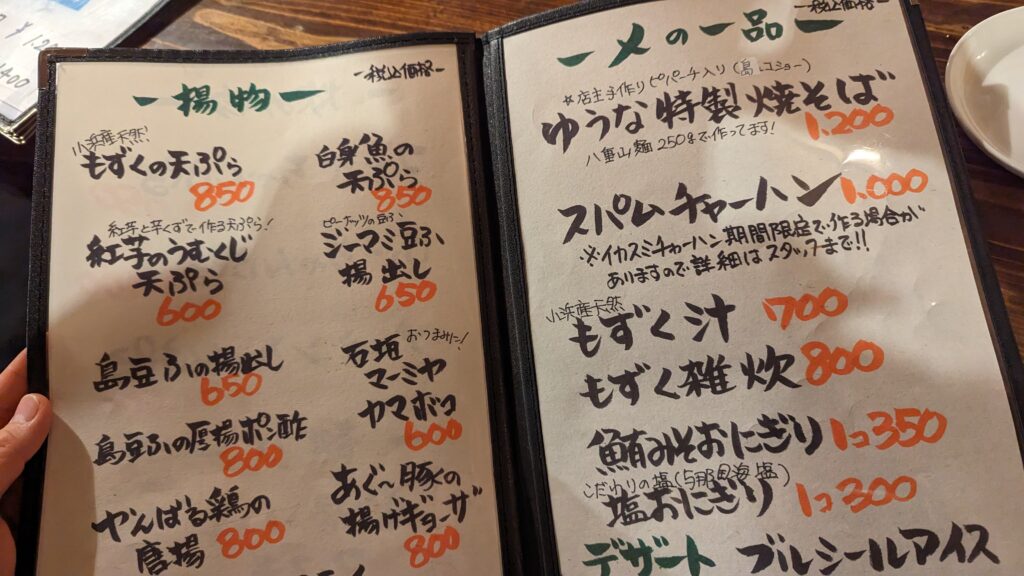 一 揚物 一
税込価格
小浜産天然!
もずくの天ぷら
850
紅芋と芋くずで作る天ぷら!
紅芋のうむくじ
天ぷら
600
島豆ふの揚出し
650
島豆ふの厚揚ポン酢
800
やんばる鶏の
唐揚 800
白身魚の
天ぷら
850
ピーナッツの豆ふ
ジーマミ豆ふ
揚出し
650
おつまみに!
石垣
マーミヤ
カマボコ
600
あぐー豚の
揚げギョーザ
800
一 〆の一品 一
税込価格
☆店主手作りピパーチ入り(島コショー)
ゆうな特製焼そば
1.200
八重山麺250gで作ってます!
スパムチャーハン 1.000
※イカスミチャーハン期間限定で作る場合が
ありますので詳細はスタッフまで!!
小浜産天然
もずく汁 700
もずく雑炊 800
鮪みそおにぎり 1コ350
こだわりの塩(与那国海塩)
塩おにぎり 1コ300
デザート ブルーシールアイス